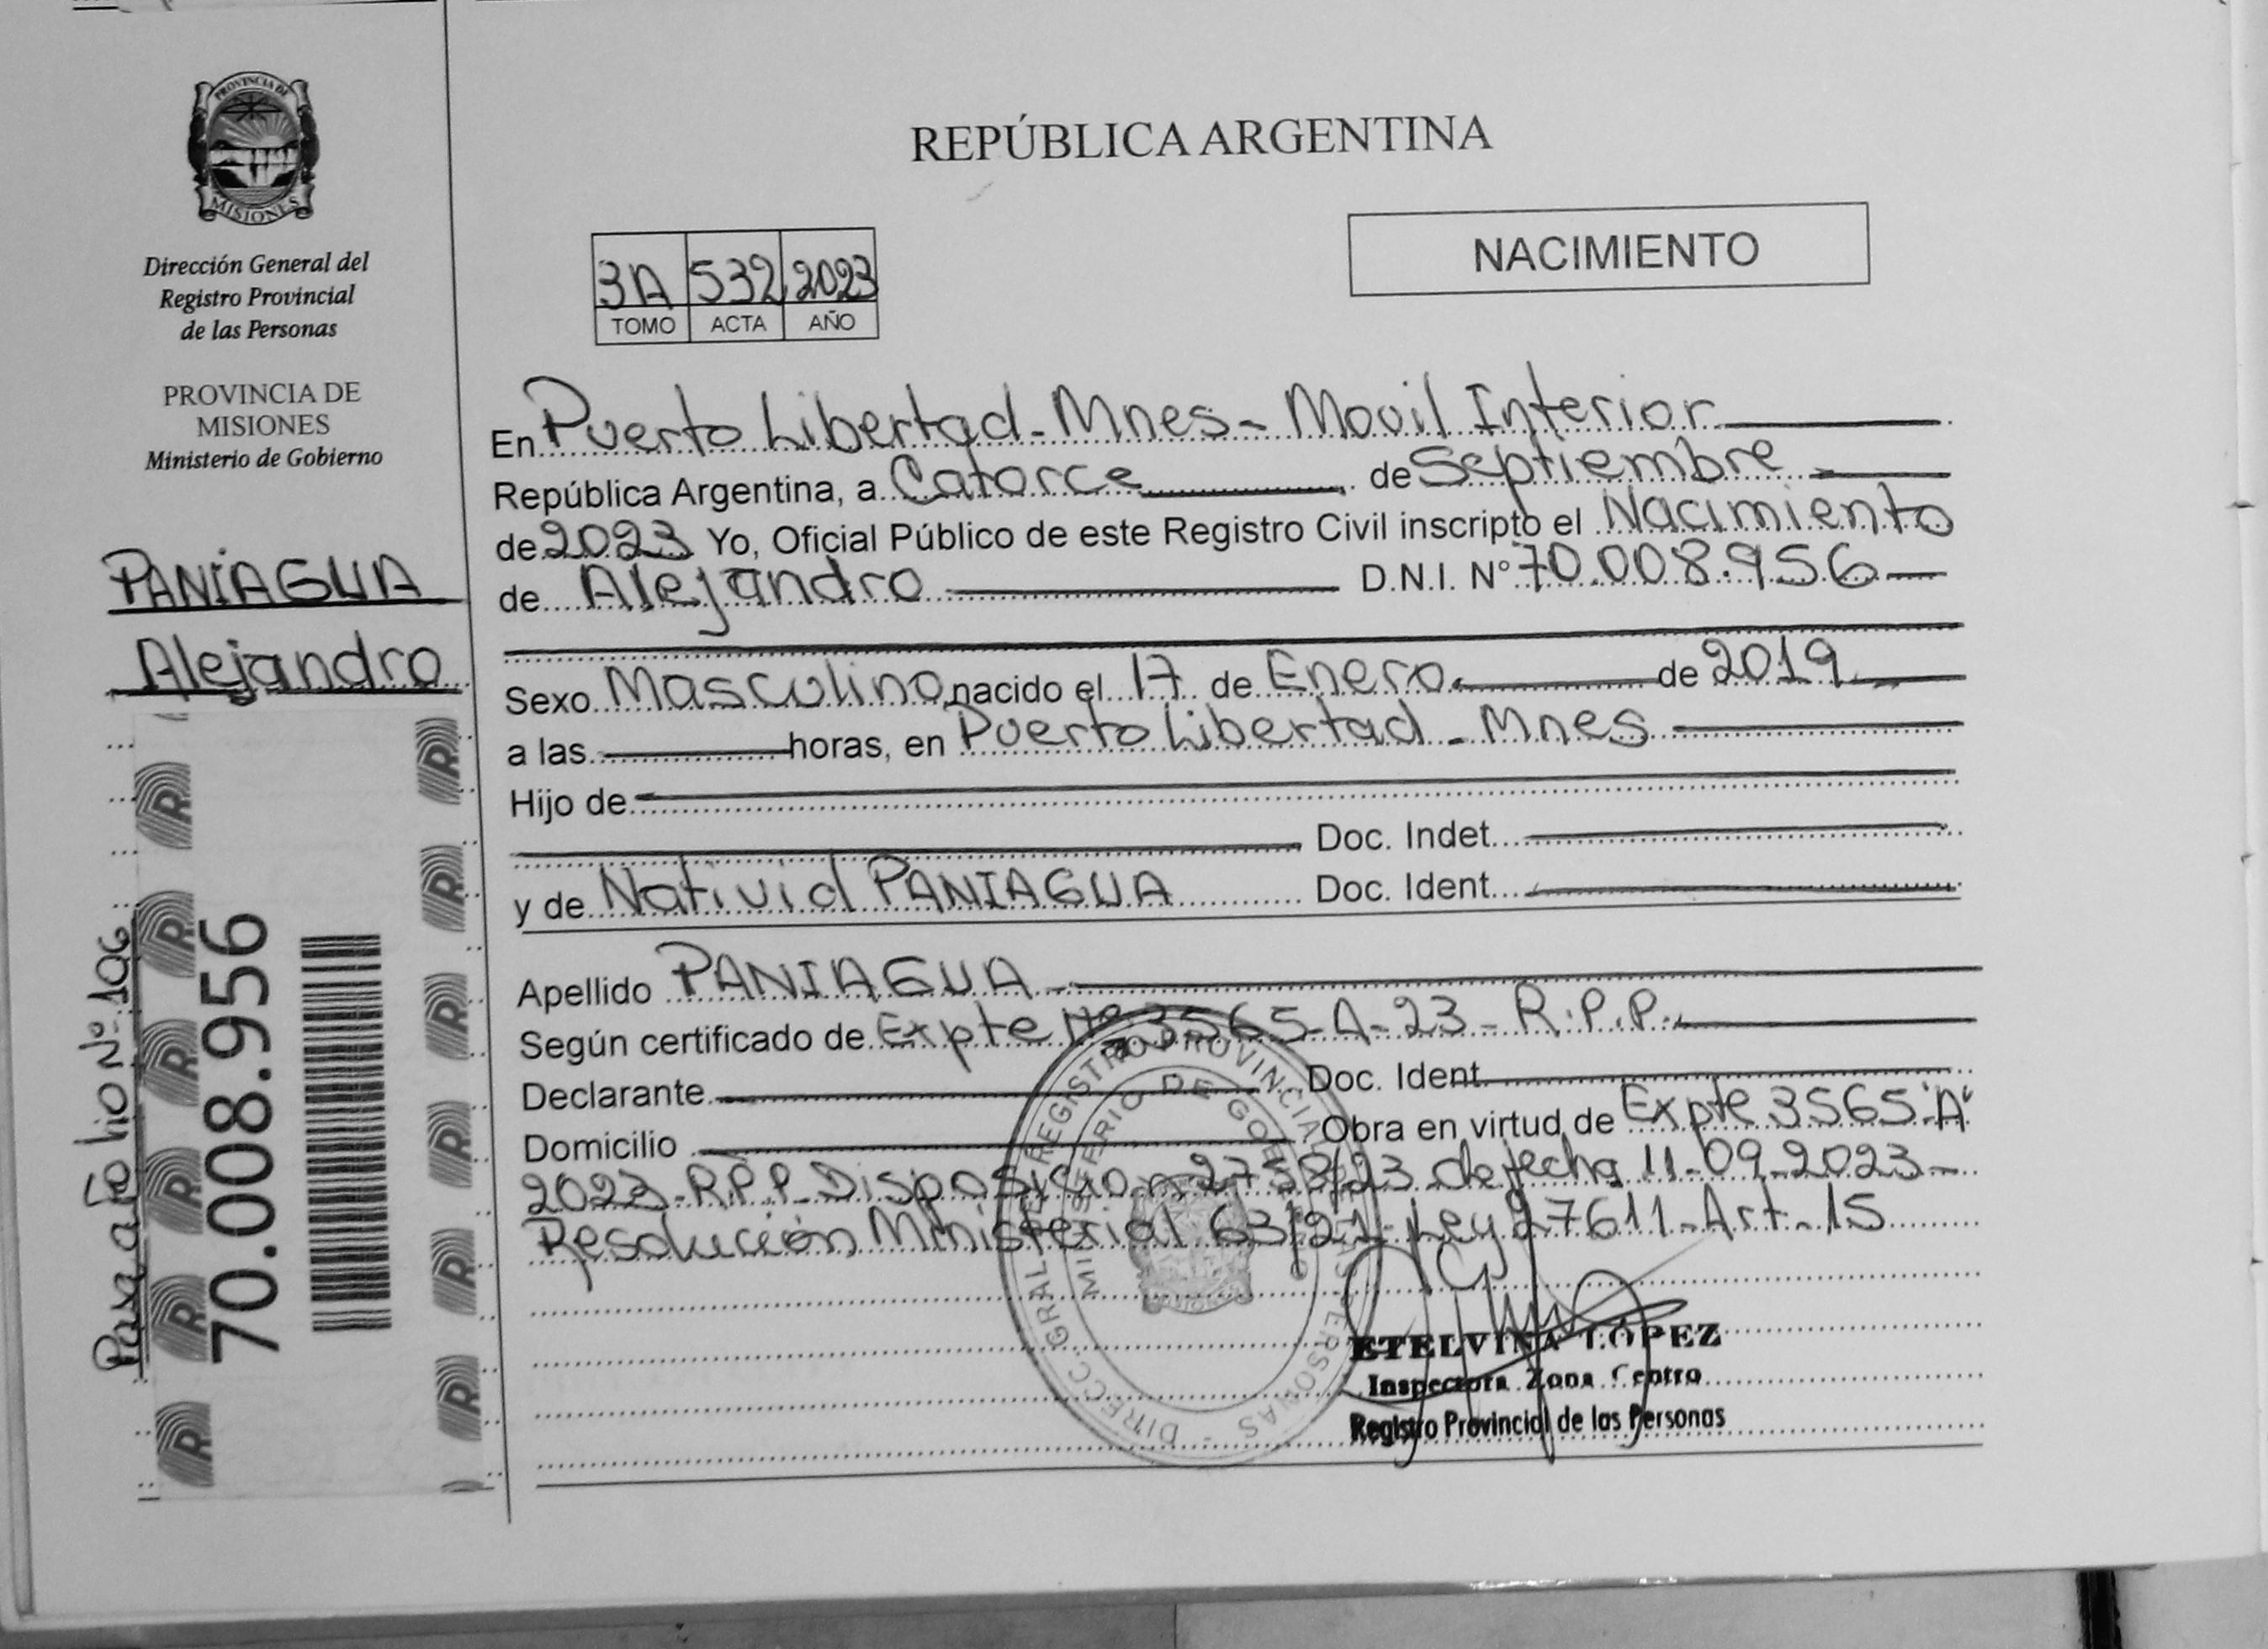 PROVINCIA DE
MISIONES
Dirección General del
Registro Provincial
de las Personas
PROVINCIA DE
MISIONES
Ministerio de Gobierno
PANIAGUA
Alejandro
Pasa a folio Nº 106
70.008.956
REPÚBLICA ARGENTINA
NACIMIENTO
3A 532 2023
TOMO ACTA AÑO
En Puerto Libertad - Mnes - Movil Interior
República Argentina, a Catorce de Septiembre
de 2023 Yo, Oficial Público de este Registro Civil inscripto el Nacimiento
de Alejandro D.N.I. N° 70.008.956
Sexo Masculino nacido el 17 de Enero de 2019
a las horas, en Puerto Libertad - Mnes
Hijo de
Doc. Indet.
y de Nativid PANIAGUA Doc. Ident.
Apellido PANIAGUA
Según certificado de Expte Nº 3565-A-23-R.P.P.
Declarante Doc. Ident.
Domicilio Obra en virtud de Expte 3565 "A"
2023-R.P.P. Disposición 2758/23 de fecha 11-09-2023-
Resolución Ministerial 63/21-Ley 27611-Art-15
DIRECC. GRAL. REGISTRO PROVINCIAL DE LAS PERSONAS
MINISTERIO DE GOBIERNO
ETELVINA LÓPEZ
Inspectora Zona Centro
Registro Provincial de las Personas